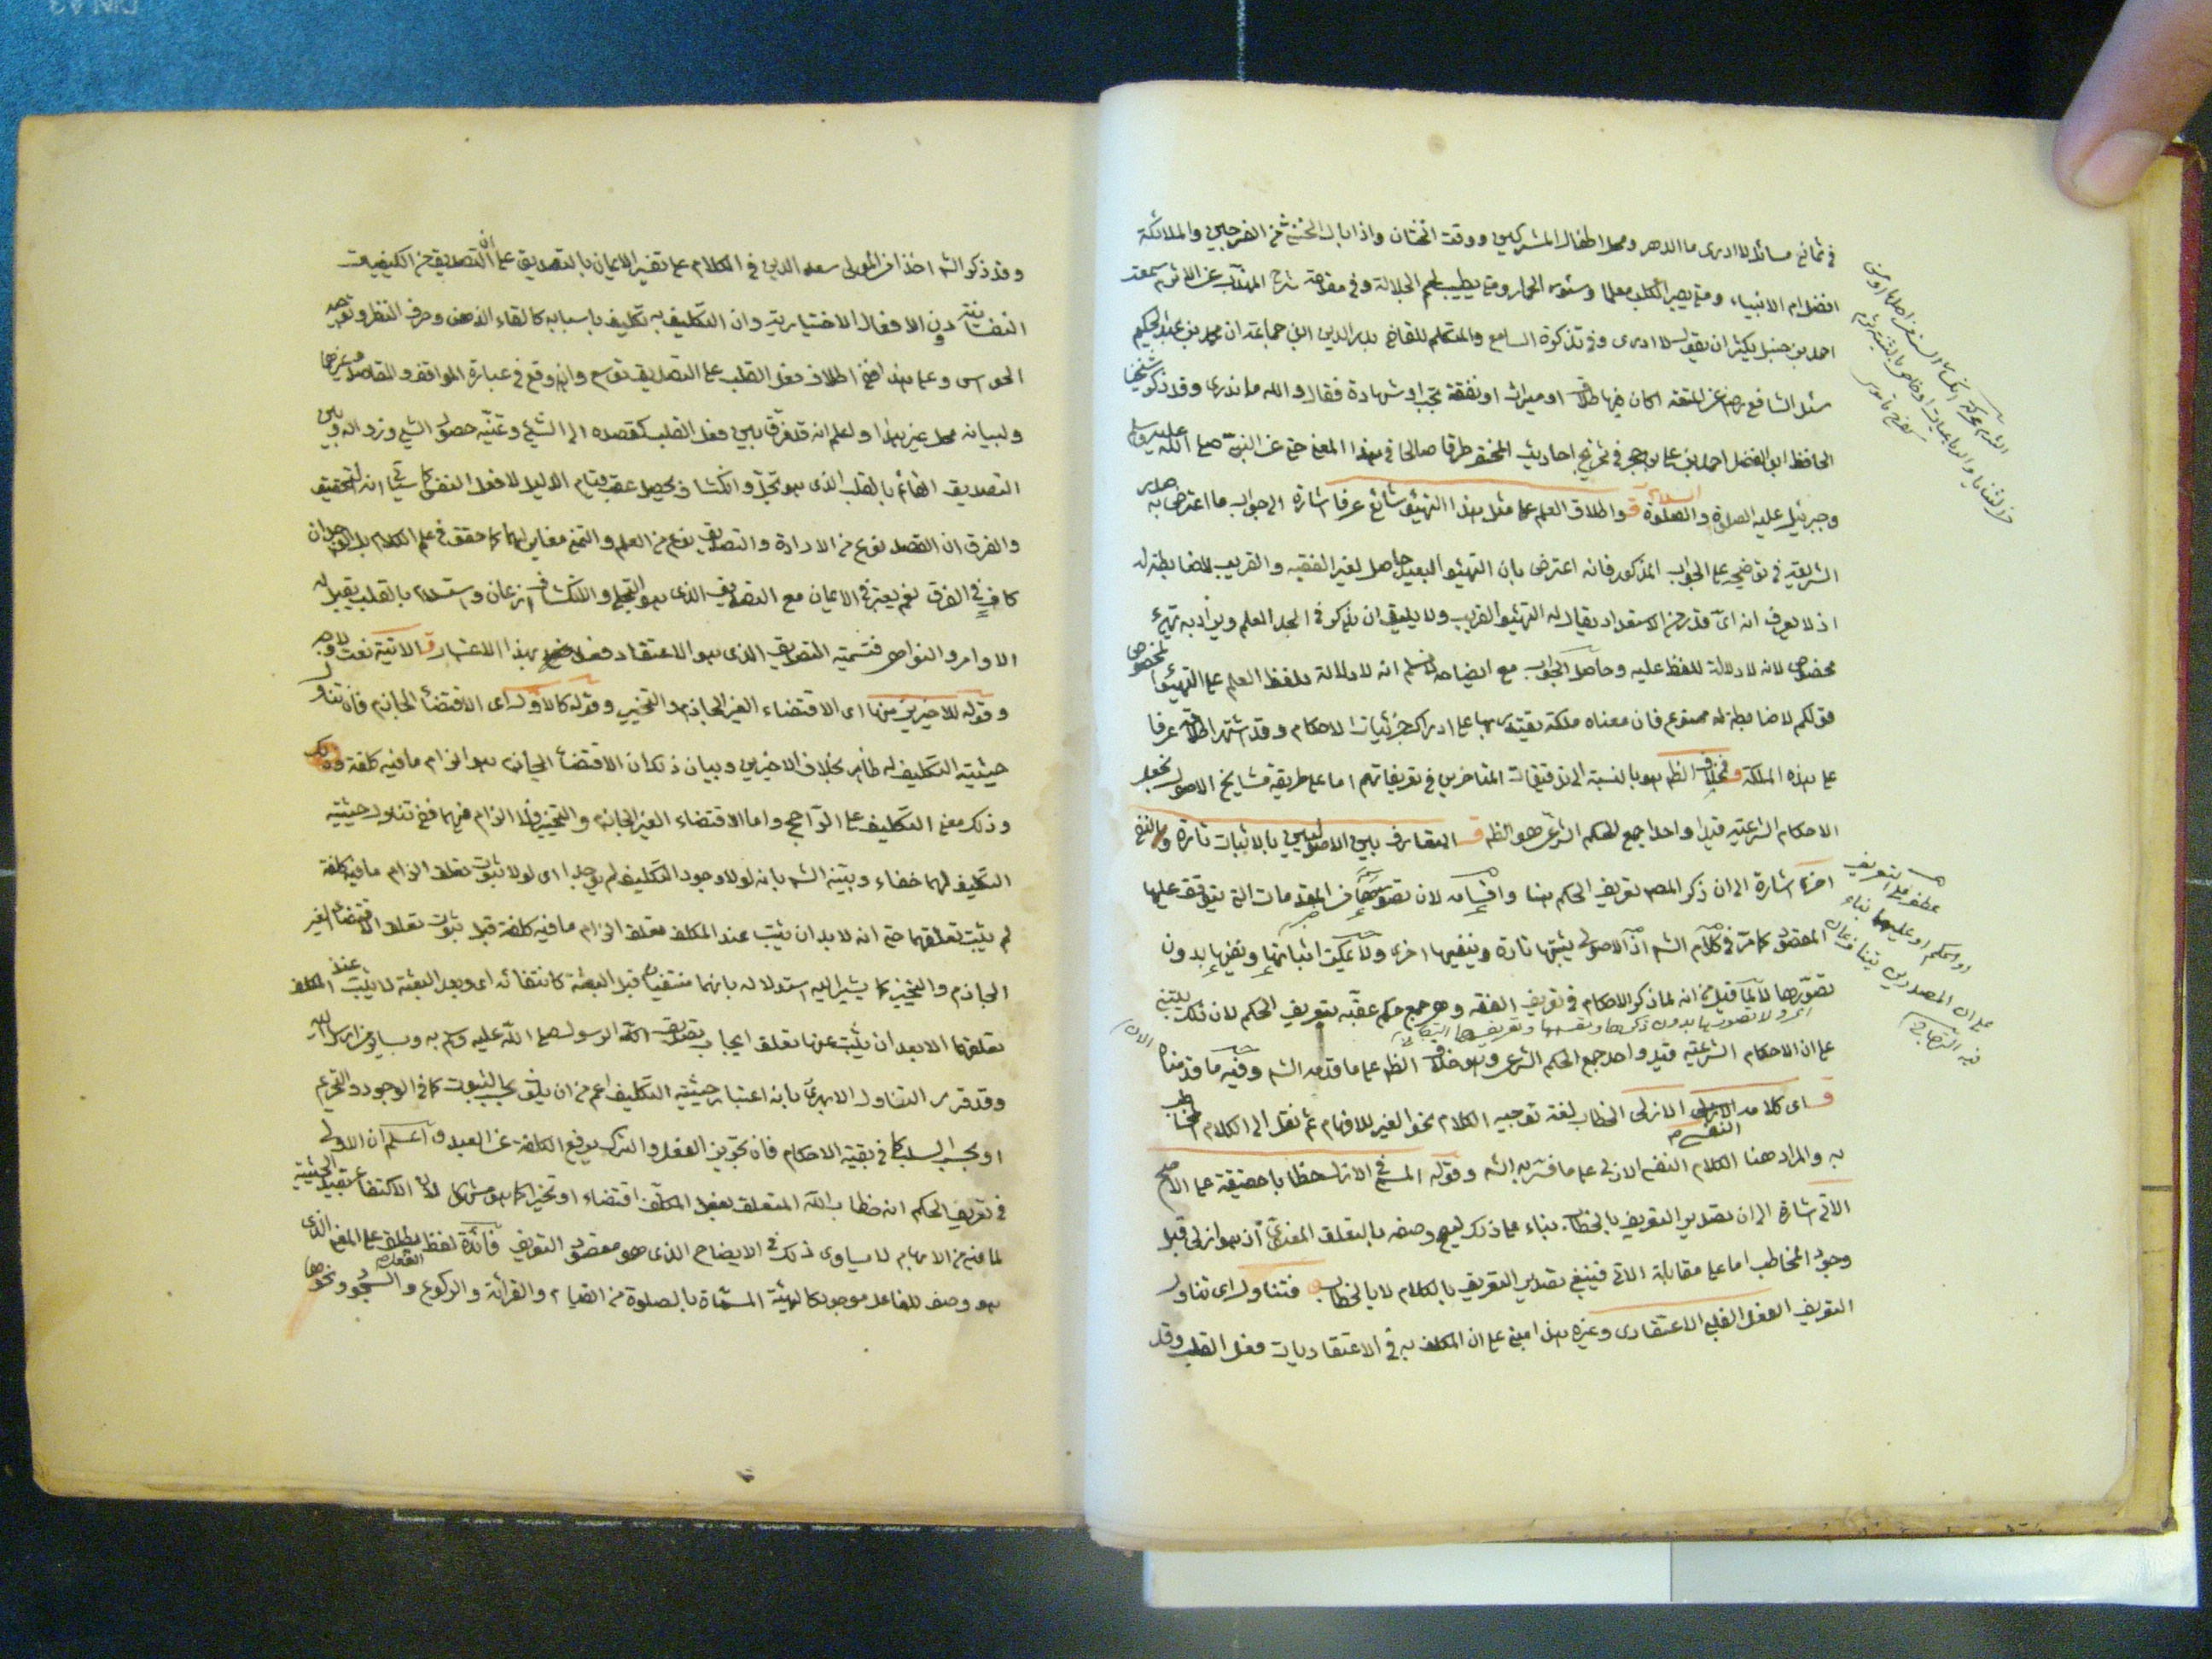 في ثمانى مسائل لا ادرى ما الدهر ومحل اطفال المشركين ووقت الختان واذا بال الخنثى من الفرجين والملائكة
افضل ام الانبياء ومتى يصير الكلب معلما وسئور الحمار ومتى يطيب لحم الجلالة وفي مقدمة شرح المهذب عن الاثرم سمعت
احمد بن حنبل يكثر ان يقول لا ادرى وفي تذكرة السامع والمتكلم للقاضى بدر الدين ابن جماعة ان محمد بن عبد الحكيم
سئل الشافعي رضه عن المتعة اكان فيها طلاق او ميراث او نفقة تجب او شهادة فقال والله ما ندرى وقد ذكر شيخنا
الحافظ ابو الفضل احمد بن على بن حجر في تخريج احاديث المختصر طرقا صالحا في هذا المعنى حتى عن النبى صلى الله عليه وسلم
وجبرئيل عليه الصلوة والسلام ق واطلاق العلم على مثل هذا التهيئو شائع عرفا اشارة الى جواب ما اعترض به صدر
الشريعة في توضيحه على الجواب المذكور فانه اعترض بان التهيئو البعيد حاصل لغير الفقيه والقريب لا ضابطة له
اذ لا يعرف انه اى قدر من الاستعداد يقال له التهيئو القريب ولا يليق ان يذكر في الحد العلم ويراد به تهيء
مخصوص لانه لا دلالة للفظ عليه وحاصل الجواب مع ايضاحه لا نسلم انه لا دلالة للفظ العلم على التهيئو المخصوص
قولكم لا ضابطة له ممنوع فان معناه ملكة يقتدر بها على ادراك جزئيات الاحكام وقد اشتهر اطلاقه عرفا
على هذه الملكة ق فخلاف الظ هو بالنسبة الى تدقيقات المتاخرين في تعريفاتهم اما على طريقة مشايخ الاصول فجعل
الاحكام الشرعية قيدا واحدا جمع للحكم الشرعى هو الظ ق المتعارف بين الاصوليين بالاثبات تارة والنفى
اخرى اشارة الى ان ذكر المصه تعريف الحكم هنا واقسامه لان تصورها من المقدمات التى يتوقف عليها
المقصود كما مر في كلام الشه اذ الاصولى يثبتها تارة وينفيها اخرى ولا يمكن اثباتها ونفيها بدون
تصورها لا لما قيل من انه لما ذكر الاحكام في تعريف الفقه وهو جمع حكم عقبه بتعريف الحكم لان ذلك يبتنى
على ان الاحكام الشرعية قيد واحد جمع الحكم الشرعى وهو خلاف الظ على ما قدمه الشه وفيه ما قدمناه
ق اى كلامه النفسى الازلى الخطاب لغة توجيه الكلام نحو الغير للافهام ثم نقل الى الكلام المخاطب
به والمراد هنا الكلام النفسى الازلى على ما فسر به الشه وقوله المسمى في الازل خطابا حقيقة على الاصح
الاتى اشارة الى ان تصدير التعريف بالخطاب بناء على ذلك ليصح وصفه بالمتعلق المعنوى اذ هو ازلى قبل
وجود المخاطب اما على مقابلة الاتى فينبغى تصدير التعريف بالكلام لا بالخطاب ق فتناول اى تناول
التعريف الفعل القلبى الاعتقادى وغيره هذا مبنى على ان المكلف به في الاعتقاديات فعل القلب وقد
عطف على تعريف
او الحكم او عليهما بناء
على ان المصدرين يتنازعان
وقد ذكر الشه اخذا من المولى سعد الدين في الكلام على تفسير الايمان بالتصديق على ان التصديق من الكيفيات
النفسانية دون الافعال الاختيارية وان التكليف به تكليف باسبابه كالقاء الذهن وصرف النظر وتوجيه
الحواس وعلى هذا فى اطلاق فعل القلب على التصديق توسع وان وقع في عبارة المواقف والمقاصد وغيرهما
ولبيانه محل غير هذا ولعلم انه قد فرق بين فعل القلب كقصده الى الشئ وتمنيه حصول الشئ وزواله وبين
التصديق القائم بالقلب الذى هو تجلى وانكشاف يحصل عقب قيام الدليل لا فعل النفس كما سيأتى انه التحقيق
والفرق ان القصد نوع من الارادة والتصديق نوع من العلم والتمنى مغاير لهما كما حقق في علم الكلام بل الوجدان
كاف في الفرق نعم يعتبر في الايمان مع التصديق الذى هو التجلى والانكشاف اذعان واستسلام بالقلب بقبوله
الاوامر والنواهى فتسمية التصديق الذى هو الاعتقاد فعلا صح بهذا الاعتبار ق الاتية نعت لاوجه
وقوله للاخيرين منها اى الاقتضاء الغير الجازم والتخيير وقوله كالاول اى الاقتضاء الجازم فان تناول
حيثية التكليف له ظاهر بخلاف الاخيرين وبيان ذلك ان الاقتضاء الجازم هو الزام ما فيه كلفة
وذلك معنى التكليف على الراجح واما الاقتضاء الغير الجازم والتخيير فلا الزام فيهما ففى تناول حيثية
التكليف لهما خفاء وبينه الشه بانه لولا وجود التكليف لم يوجدا اى لولا ثبوت تعلق الزام ما فيه كلفة
لم يثبت تعلقهما حتى انه لا بد ان يثبت عند المكلف تعلق الزام ما فيه كلفة قبل ثبوت تعلق الاقتضاء الغير
الجازم والتخيير كما يشير اليه استدلاله بانهما منتفيان قبل البعثة كانتفائه اى وبعد البعثة لا يثبت عند المكلف
تعلقهما الا بعد ان يثبت عنده تعلق ايجاب تصديق الرسول صلى الله عليه وسلم به
وقد قرر التناول الابهرى بانه اعتبار حيثية التكليف اعم من ان يثبت بحسب الثبوت كما في الوجوب والتحريم
او بحسب السلب كما في بقية الاحكام فان تجويز الفعل والترك يرفع الكلفة عن العبد واعلم ان الاولى
في تعريف الحكم انه خطاب الله المتعلق بفعل المكلف اقتضاء او تخييرا كما هو مشهور لان الاكتفاء بقيد الحيثية
لما فيه من الابهام لا يساوى ذلك في الايضاح الذى هو مقصود التعريف فائدة لفظ الفعل يطلق على المعنى الذى
هو وصف للفاعل موجود كالهيئة المسماة بالصلوة من القيام والقرائة والركوع والسجود ونحوها